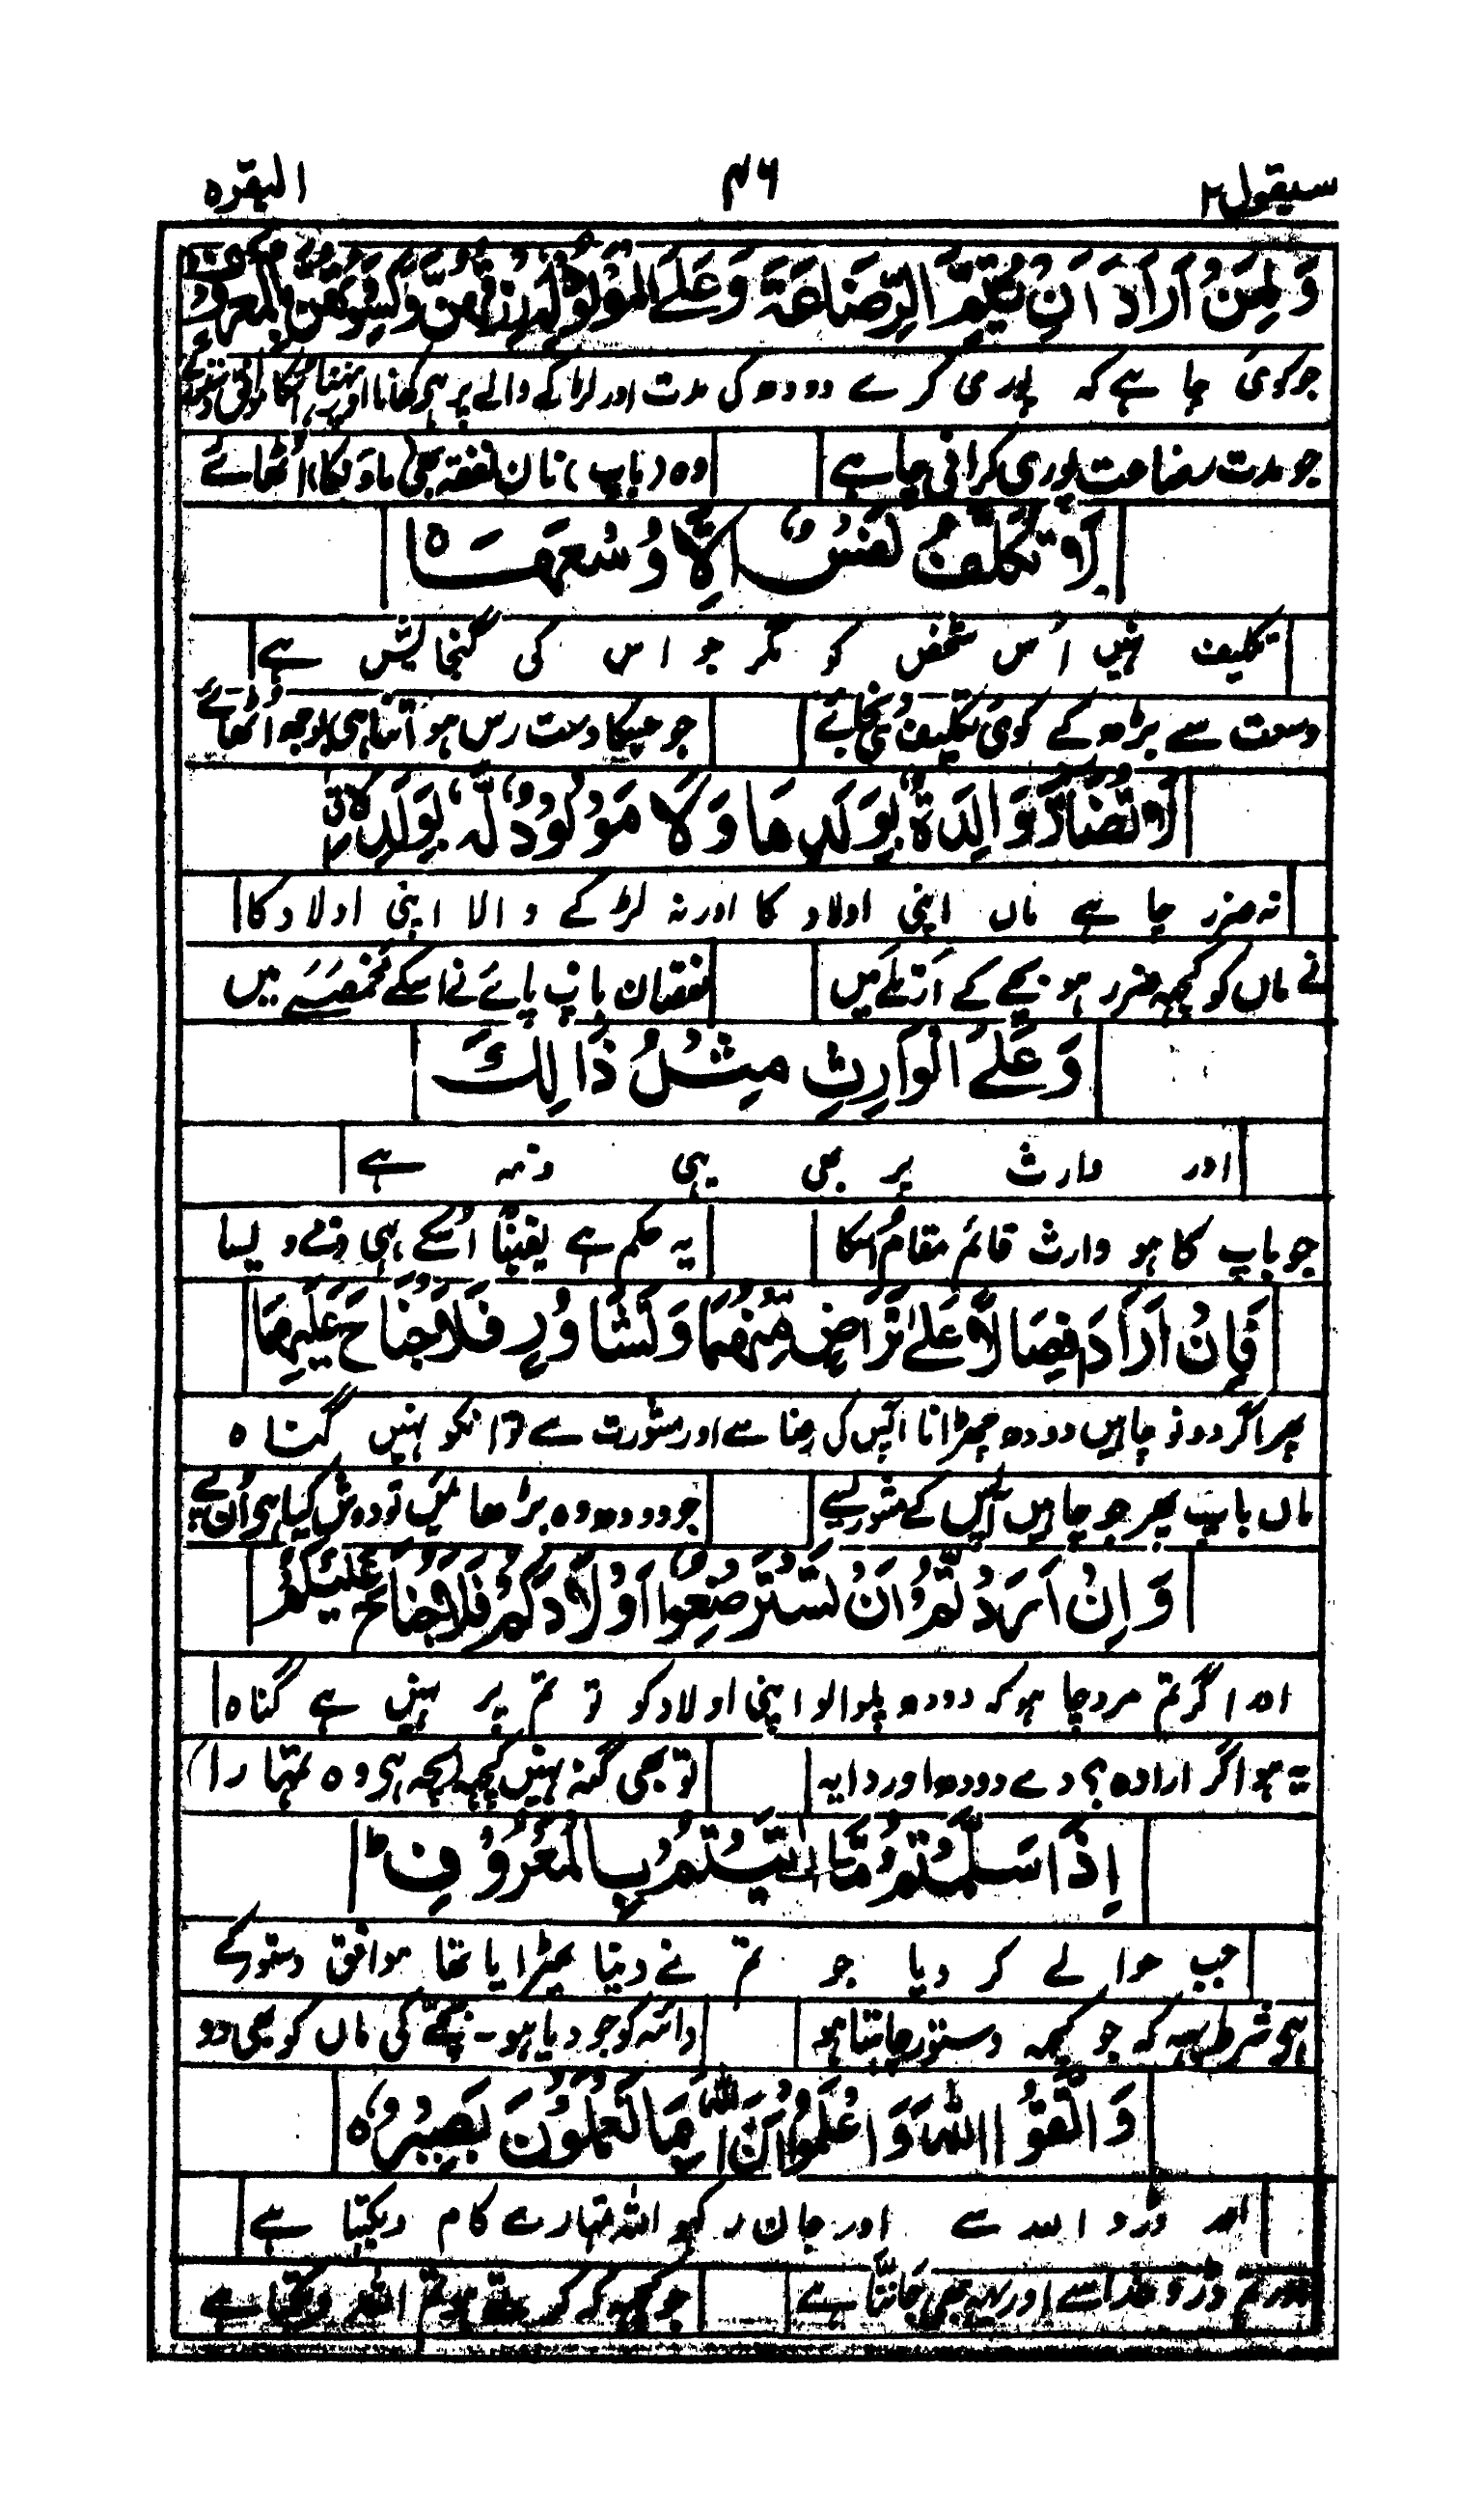 سیقول ۲ ۴۶ البقرہ
لِمَنْ اَرَادَ اَنْ يُّتِمَّ الرَّضَاعَةَ وَعَلَى الْمَوْلُوْدِ لَهٗ رِزْقُهُنَّ وَكِسْوَتُهُنَّ بِالْمَعْرُوْفِ
جو کوئی چاہے کہ پوری کرے دودہ کی مدت اور لڑکے والے پر ہی کھانا اور پہننا انکا موافق دستور کے
جو مدت رضاعت پوری کرانی چاہے وہ (باپ) نان نفقہ بھی ماؤں کا اُٹھائے
لَا تُكَلَّفُ نَفْسٌ اِلَّا وُسْعَهَا ه
تکلیف نہیں اُس شخص کو مگر جو اس کی گنجایش ہے
وسعت سے بڑھ کے کوئی تکلیف نہ پائے جو جسکا دست رس ہو اتنا ہی بوجھ اُٹھائے
لَا تُضَآرَّ وَالِدَةٌ بِوَلَدِهَا وَلَا مَوْلُوْدٌ لَّهٗ بِوَلَدِهٖ
نہ ضرر چاہے ماں اپنی اولاد کا اور نہ لڑکے والا اپنی اولاد کا
نے ماں کو کچھہ ضرر ہو بچے کے نقصان باپ پائے نے اسکے مخمصے میں
وَعَلَى الْوَارِثِ مِثْلُ ذَالِكَ
اور وارث پر بھی یہی ذمہ ہے
جو باپ کا ہو وارث قائم مقام اسکا یہ حکم ہے یقینًا اُسکے ہی ذمے ویسا
فَاِنْ اَرَادَ فِصَالًا عَلٰى تَرَاضٍ مِّنْهُمَا وَتَشَاوُرٍ فَلَا جُنَاحَ عَلَيْهِمَا
پھر اگر دونو چاہیں دودہ چھڑانا آپس کی رضا سے اور مشورت سے تو انکو نہیں گناہ
ماں باپ پھر جو چاہیں آپس کے مشورے سے جو دودھ وہ بڑھائیں تو دوش کیا ہی اُن پے
وَاِنْ اَرَدْتُّمْ اَنْ تَسْتَرْضِعُوْا اَوْلَادَكُمْ فَلَا جُنَاحَ عَلَيْكُمْ
اور اگر تم مرد چاہو کہ دودہ پلوالو اپنی اولاد کو تو تم پر نہیں ہے گناہ
یہ ہو اگر ارادہ؟ دے دودہ اور دایہ تو بھی گنہ نہیں کچھہ بچہ ہی وہ تمہارا
اِذَا سَلَّمْتُمْ مَّا اٰتَيْتُمْ بِالْمَعْرُوْفِ ط
جب حوالے کر دیا جو تم نے دینا ٹھیرایا تھا موافق دستور کے
ہی شرط یہہ کہ جو کچھہ دستور جانتا ہو دائہ کو جو دیا ہو۔ بچے کی ماں کو بھی دو
وَاتَّقُوا اللهَ وَاعْلَمُوْا اَنَّ اللهَ بِمَا تَعْمَلُوْنَ بَصِيْرٌ ه
اور ڈرو اللہ سے اور جان رکہو اللہ تمہارے کام دیکہتا ہے
اور تم ڈرو خدا سے اور یہہ بھی جانتا ہے جو کچھہ کہ کرتے ہو تم اللہ دیکھتا ہے